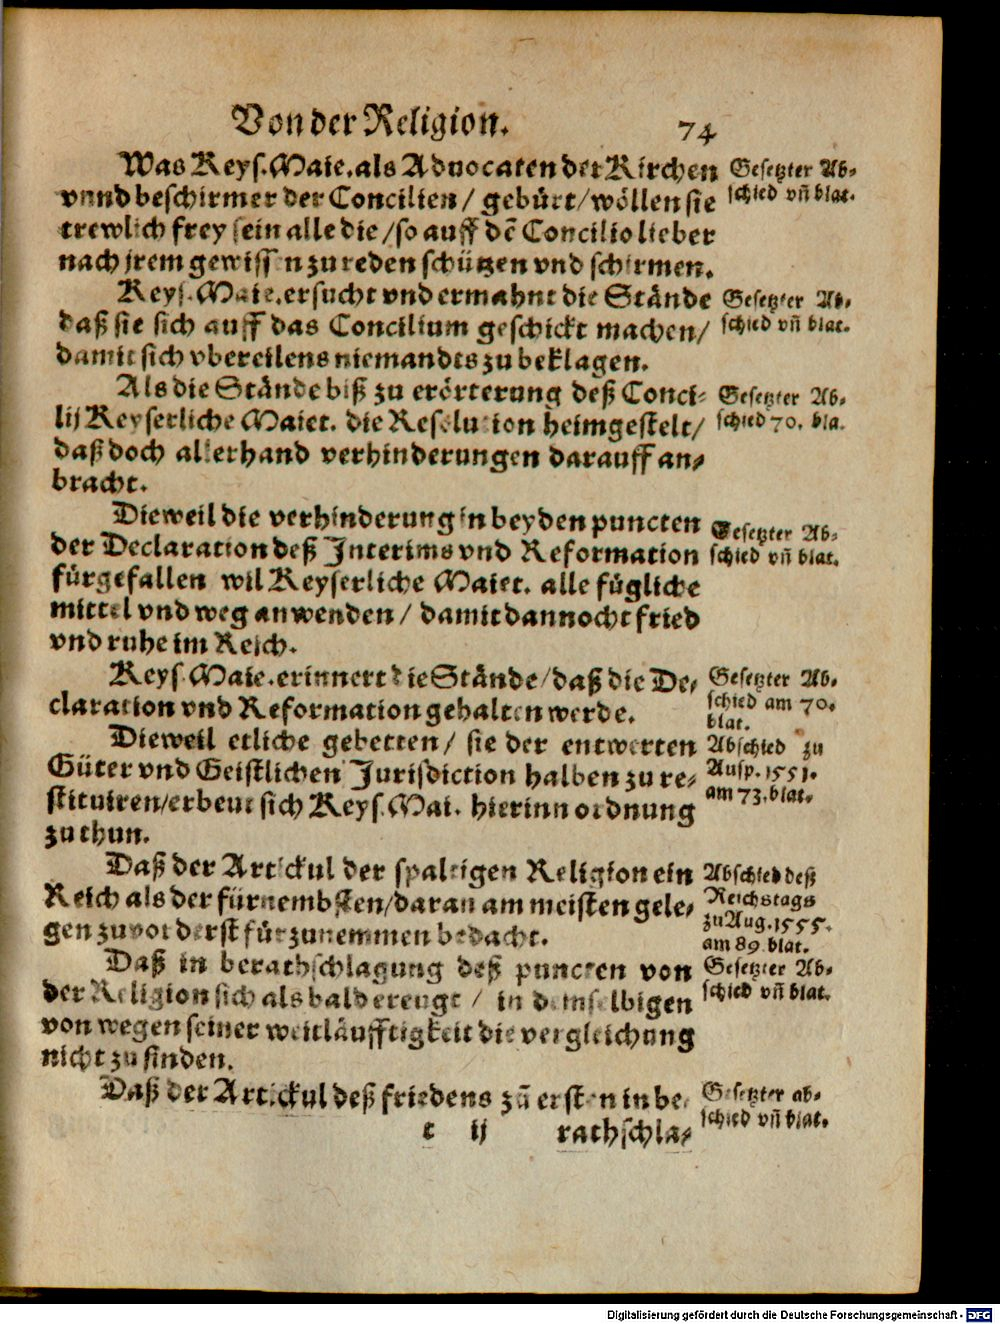 Von der Religion. 74
Was Keys. Maie. als Aduocaten der Kirchen
vnnd beschirmer der Concilien / gebürt / wöllen sie
trewlich frey sein alle die / so auff dẽ Concilio lieber
nach jrem gewissen zu reden schützen vnd schirmen.
Gesetzter Ab-
schied vñ blat.
Keys. Maie. ersucht vnd ermahnt die Stände
daß sie sich auff das Concilium geschickt machen /
damit sich vbereilens niemandts zu beklagen.
Gesetzter Ab-
schied vñ blat.
Als die Stände biß zu erörterung deß Conci-
lij Keyserliche Maiet. die Resolution heimgestelt /
daß doch allerhand verhinderungen darauff an-
bracht.
Gesetzter Ab-
schied 70. bla.
Dieweil die verhinderung in beyden puncten
der Declaration deß Interims vnd Reformation
fürgefallen wil Keyserliche Maiet. alle fügliche
mittel vnd weg anwenden / damit dannocht fried
vnd ruhe im Reich.
Gesetzter Ab-
schied vñ blat.
Keys. Maie. erinnert die Stände / daß die De-
claration vnd Reformation gehalten werde.
Gesetzter Ab-
schied am 70.
blat.
Dieweil etliche gebetten / sie der entwerten
Güter vnd Geistlichen Jurisdiction halben zu re-
stituiren / erbeut sich Keys. Mai. hierinn ordnung
zu thun.
Abschied zu
Ausp. 1551.
am 73. blat.
Daß der Artickul der spaltigen Religion ein
Reich als der fürnembsten / daran am meisten gele-
gen zuvorderst fürzunemmen bedacht.
Abschied deß
Reichstags
zu Aug. 1555.
am 89. blat.
Daß in berathschlagung deß puncten von
der Religion sich als bald ereugt / in demselbigen
von wegen seiner weitläufftigkeit die vergleichung
nicht zu finden.
Gesetzter Ab-
schied vñ blat.
Daß der Artickul deß friedens zũ ersten in be-
Gesetzter ab-
schied vñ blat.
t ij rathschla-
Digitalisierung gefördert durch die Deutsche Forschungsgemeinschaft - DFG